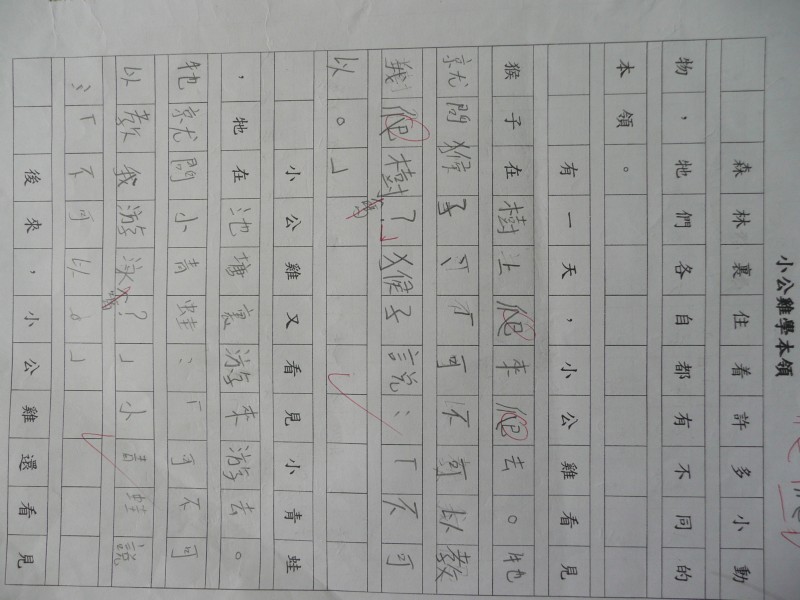 小公雞學本領
森林裏住着許多小動
物，牠們各自都有不同的
本領。
有一天，小公雞看見
猴子在樹上爬來爬去。牠
就問猴子：「可不哥以教
我爬樹？」猴子說：「不可
以。」
小公雞又看見小青蛙
，牠在池塘裏游來游去。
牠就問小青蛙：「可不可
以教我游泳？」小青蛙說
：「不可以。」
後來，小公雞還看見